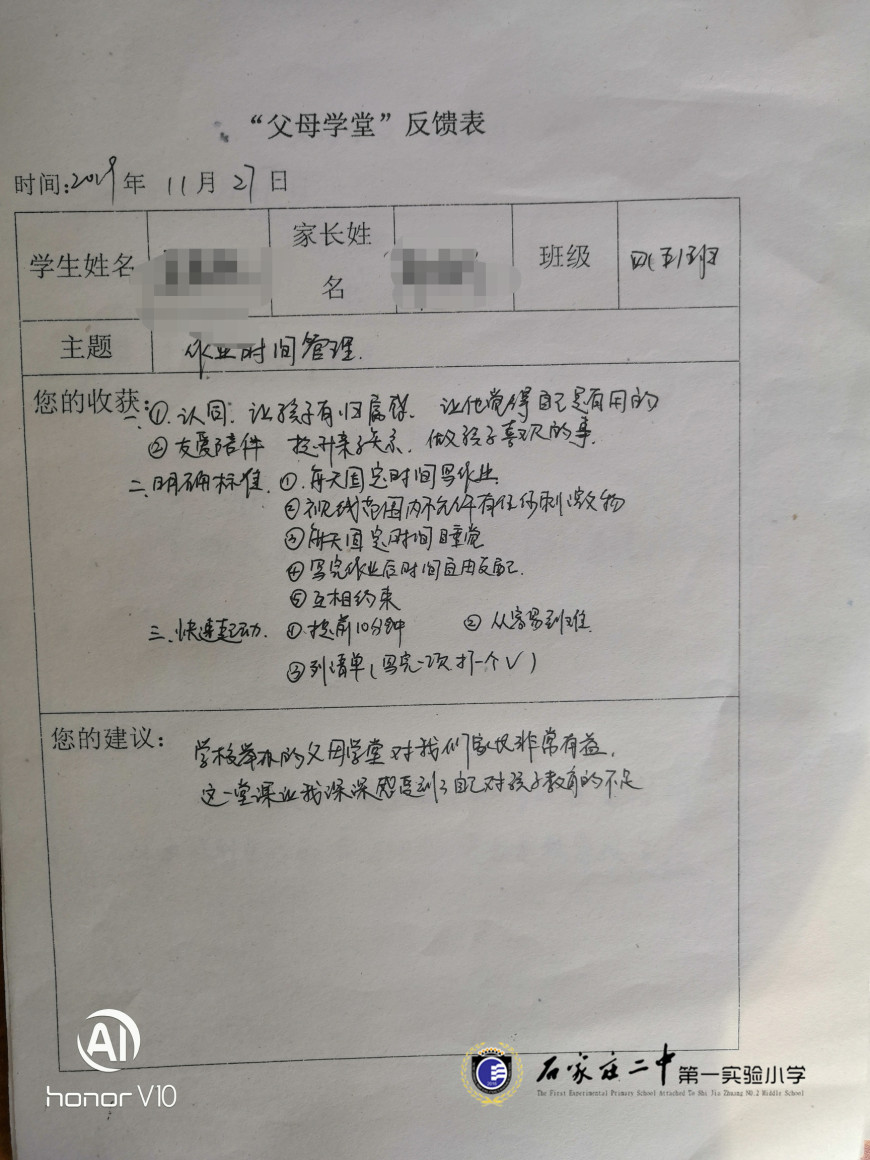 “父母学堂”反馈表
时间:2019年 11月 27日
学生姓名
家长姓名
班级 四(五)班
主题 作业时间管理.
您的收获:
一、①.认同. 让孩子有归属感. 让他觉得自己是有用的
②友爱陪伴 提升亲子关系. 做孩子喜欢的事.
二、明确标准. ①.每天固定时间写作业.
②视线范围内不允许有任何刺激物
③每天固定时间睡觉
④写完作业后时间自由支配.
⑤互相约束
三、快速起动. ①.提前10分钟 ②从容易到难.
③列清单(写完一项.打一个√)
您的建议: 学校举办的父母学堂对我们家长非常有益.
这一堂课让我深深感受到了自己对孩子教育的不足
AI
honor V10
石家庄二中第一实验小学
The First Experimental Primary School Attached To Shi Jia Zhuang NO.2 Middle School